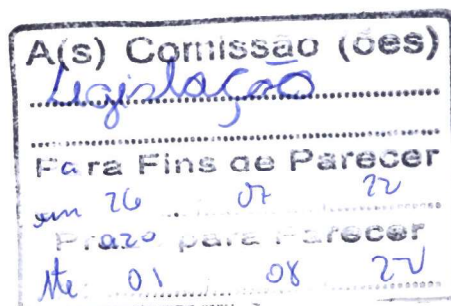 A(s) Comissão (ões)
Legislação
Para Fins de Parecer
em 26 07 22
Prazo para Parecer
Até 01 08 22